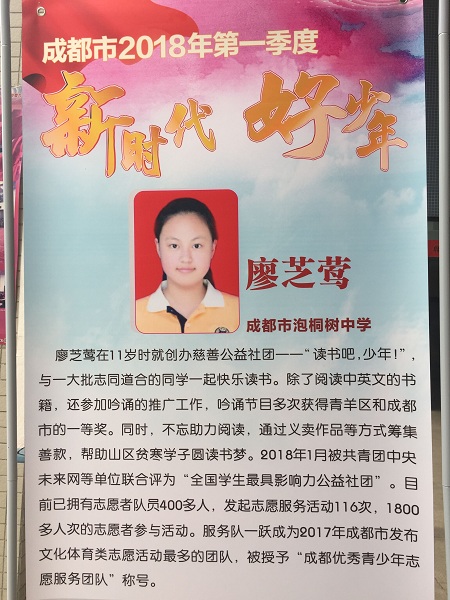 成都市2018年第一季度
新时代 好少年
廖芝莺
成都市泡桐树中学
廖芝莺在11岁时就创办慈善公益社团——“读书吧,少年!”,
与一大批志同道合的同学一起快乐读书。除了阅读中英文的书
籍，还参加吟诵的推广工作，吟诵节目多次获得青羊区和成都
市的一等奖。同时，不忘助力阅读，通过义卖作品等方式筹集
善款，帮助山区贫寒学子圆读书梦。2018年1月被共青团中央
未来网等单位联合评为“全国学生最具影响力公益社团”。目
前已拥有志愿者队员400多人，发起志愿服务活动116次，1800
多人次的志愿者参与活动。服务队一跃成为2017年成都市发布
文化体育类志愿活动最多的团队，被授予“成都优秀青少年志
愿服务团队”称号。